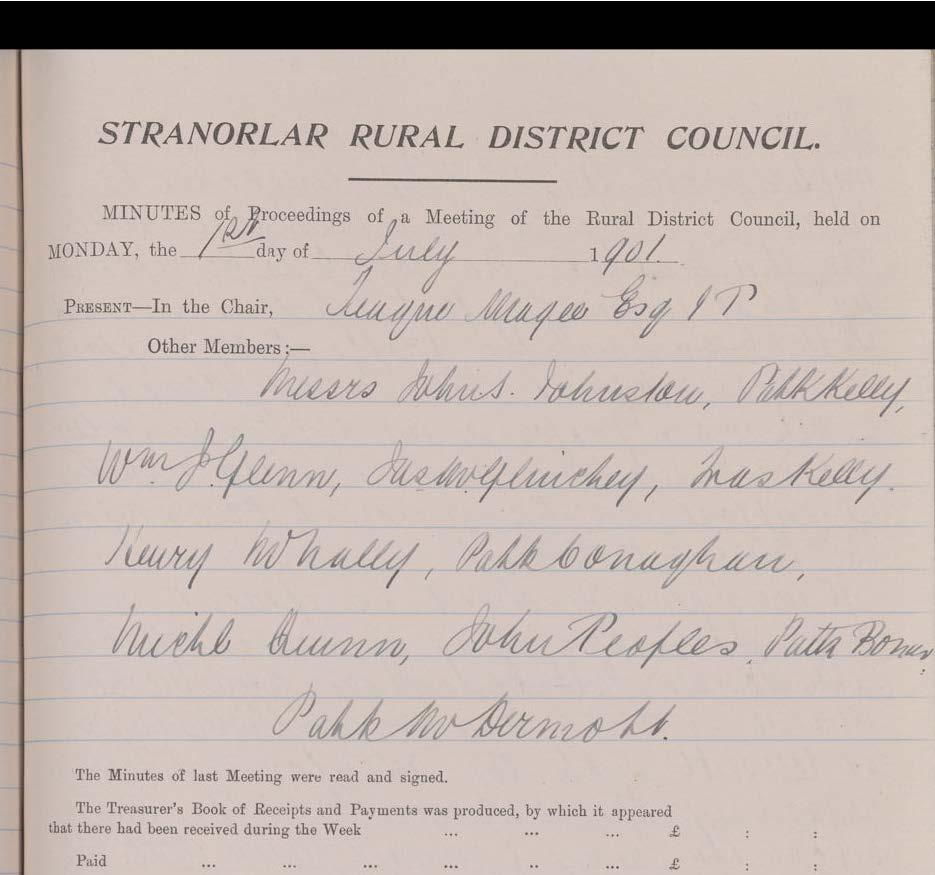 STRANORLAR RURAL DISTRICT COUNCIL.
MINUTES of Proceedings of a Meeting of the Rural District Council, held on
MONDAY, the 1st day of July 1901.
PRESENT—In the Chair, Teague Magee Esq J P
Other Members:—
Messrs John S. Johnston, Patk Kelly,
Wm J. Glenn, Jas McGlinchey, Fras Kelly.
Henry McNally, Patk Conaghan,
Michl Quinn, John Peoples, Patk Bonar
Patk McDermott.
The Minutes of last Meeting were read and signed.
The Treasurer's Book of Receipts and Payments was produced, by which it appeared
that there had been received during the Week ... ... ... £ : :
Paid ... ... ... ... .. ... £ : :